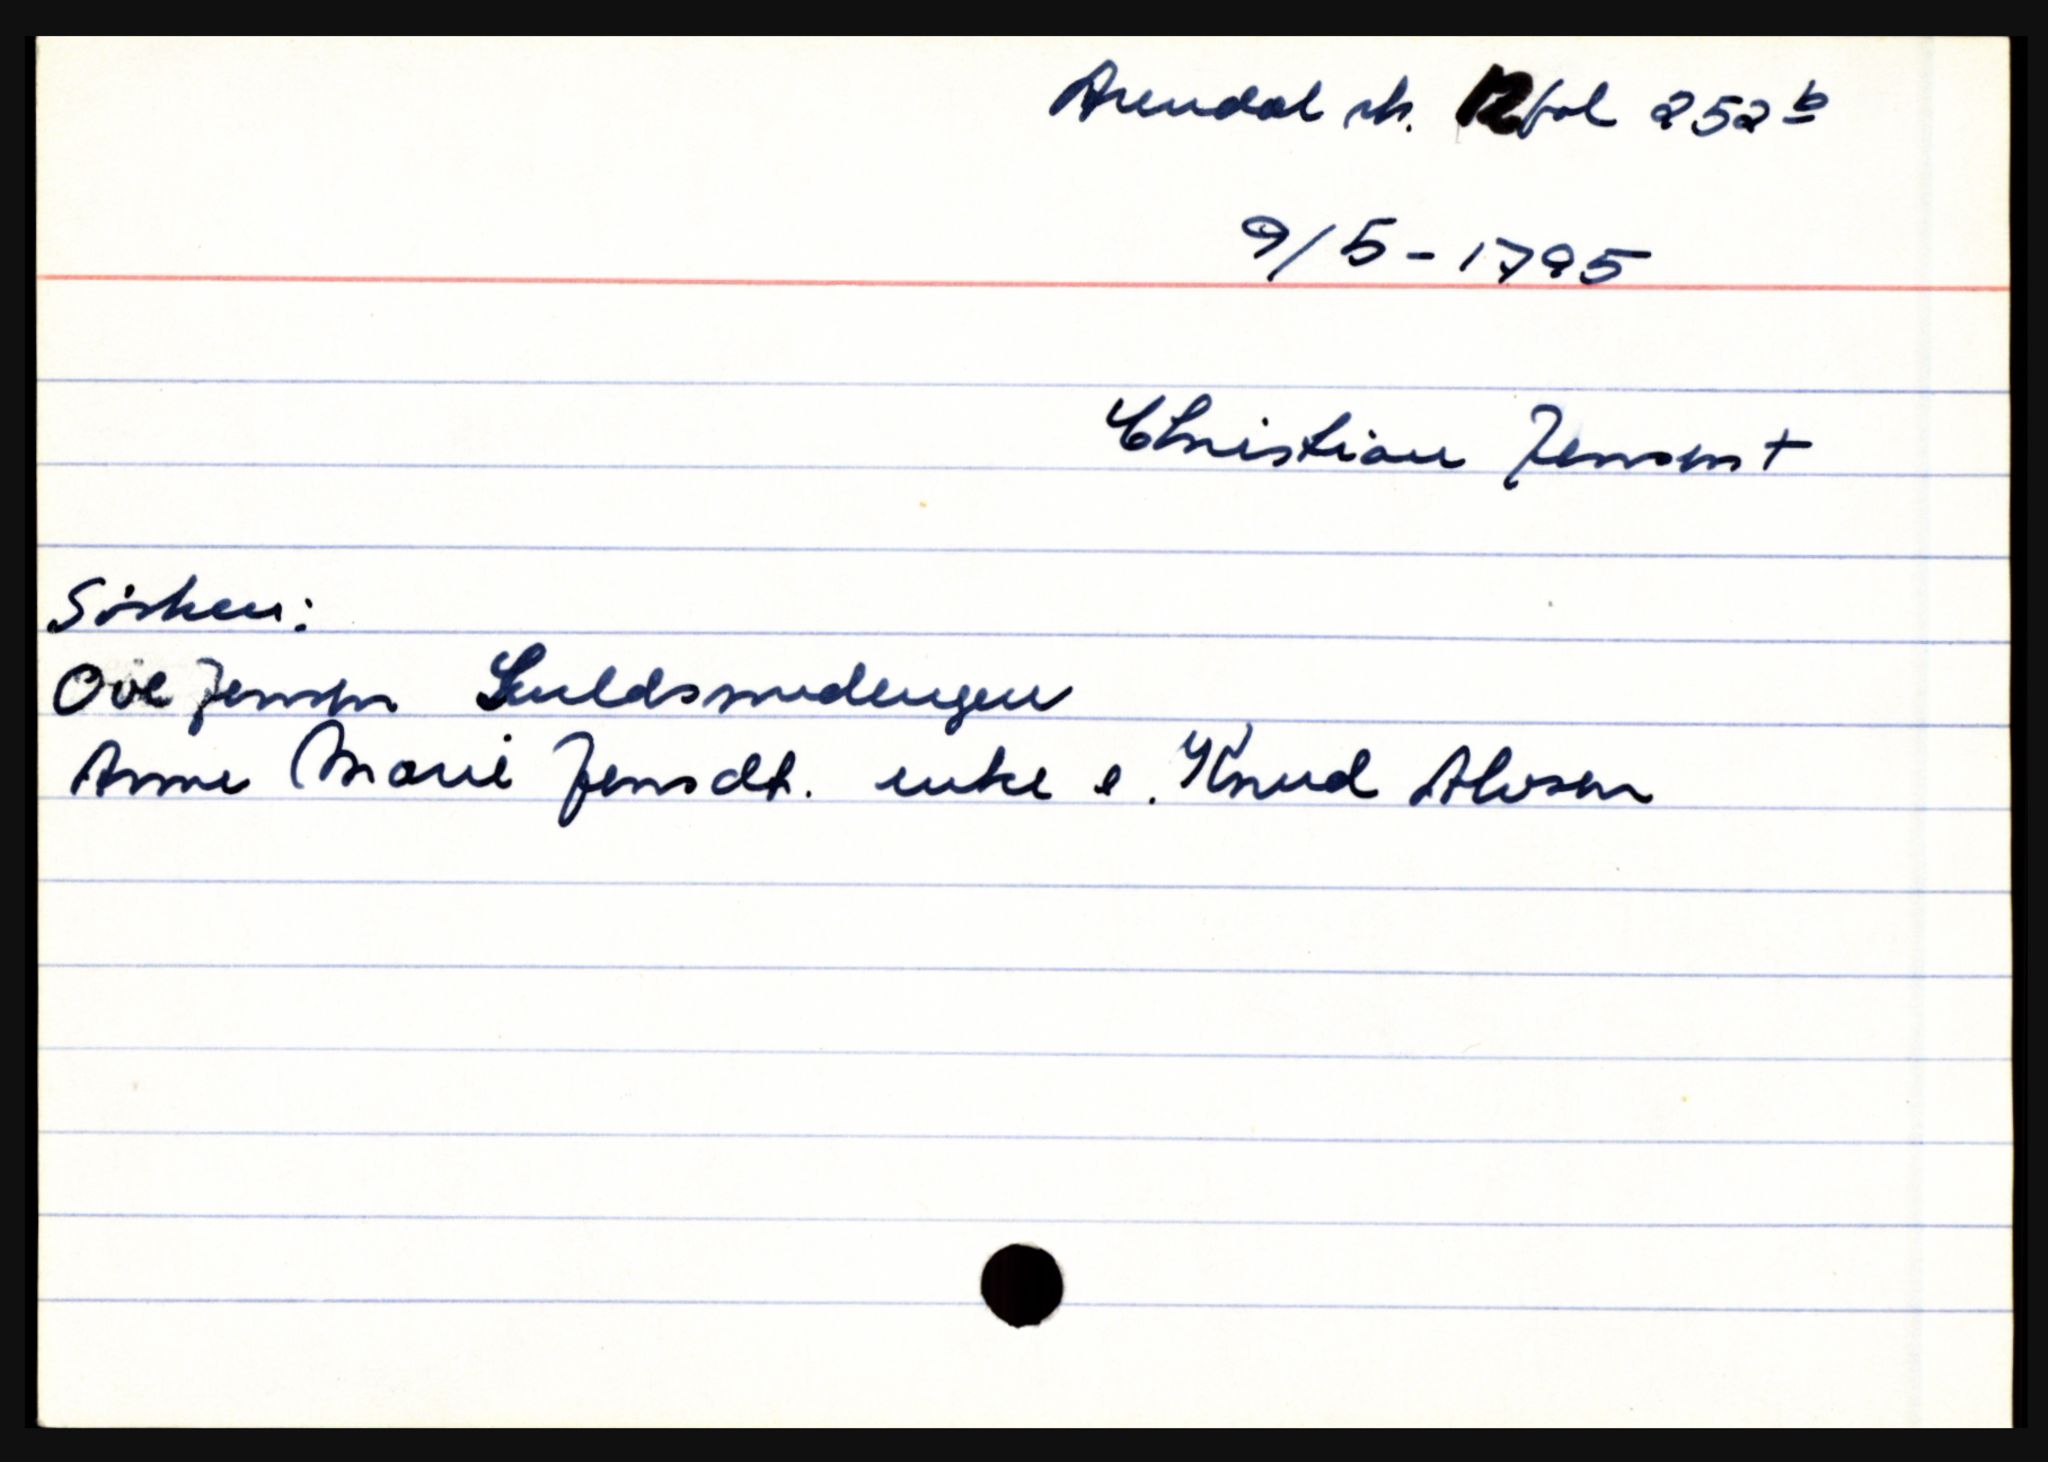 Arendal sk. 12 fol 252 b
9/5 - 1795
Christian Jensen +
Sösken:
Ove Jensen Guldsmedengen
Anne Marie Jensdt. enke e. Knud Alvsen